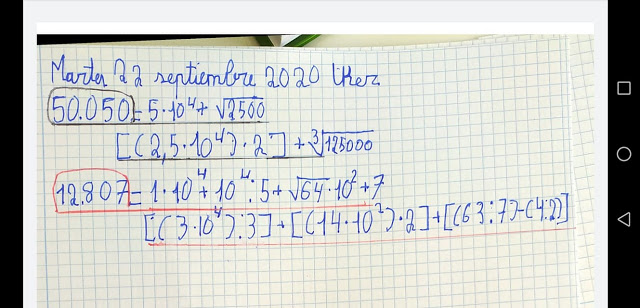 Martes 22 septiembre 2020 Uker
50.050 = 5·10⁴ + √2500
[(2,5·10⁴)·2] + ³√125000
12.807 = 1·10⁴ + 10⁴:5 + √64·10² + 7
[(3·10⁴):3] + [(14·10²)·2] + [(63:7)-(4:2)]